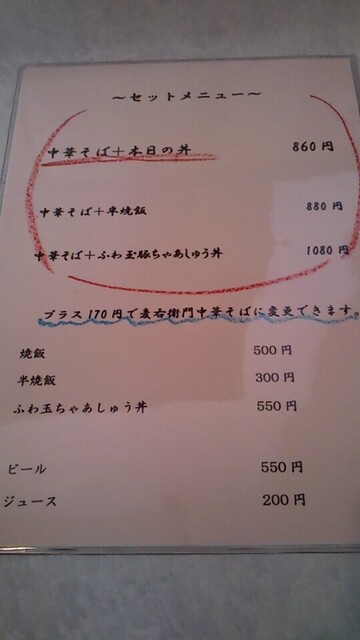 ～セットメニュー～
中華そば＋本日の丼 860円
中華そば＋半焼飯 880円
中華そば＋ふわ玉豚ちゃあしゅう丼 1080円
プラス170円で麦右衛門中華そばに変更できます。
焼飯 500円
半焼飯 300円
ふわ玉ちゃあしゅう丼 550円
ビール 550円
ジュース 200円